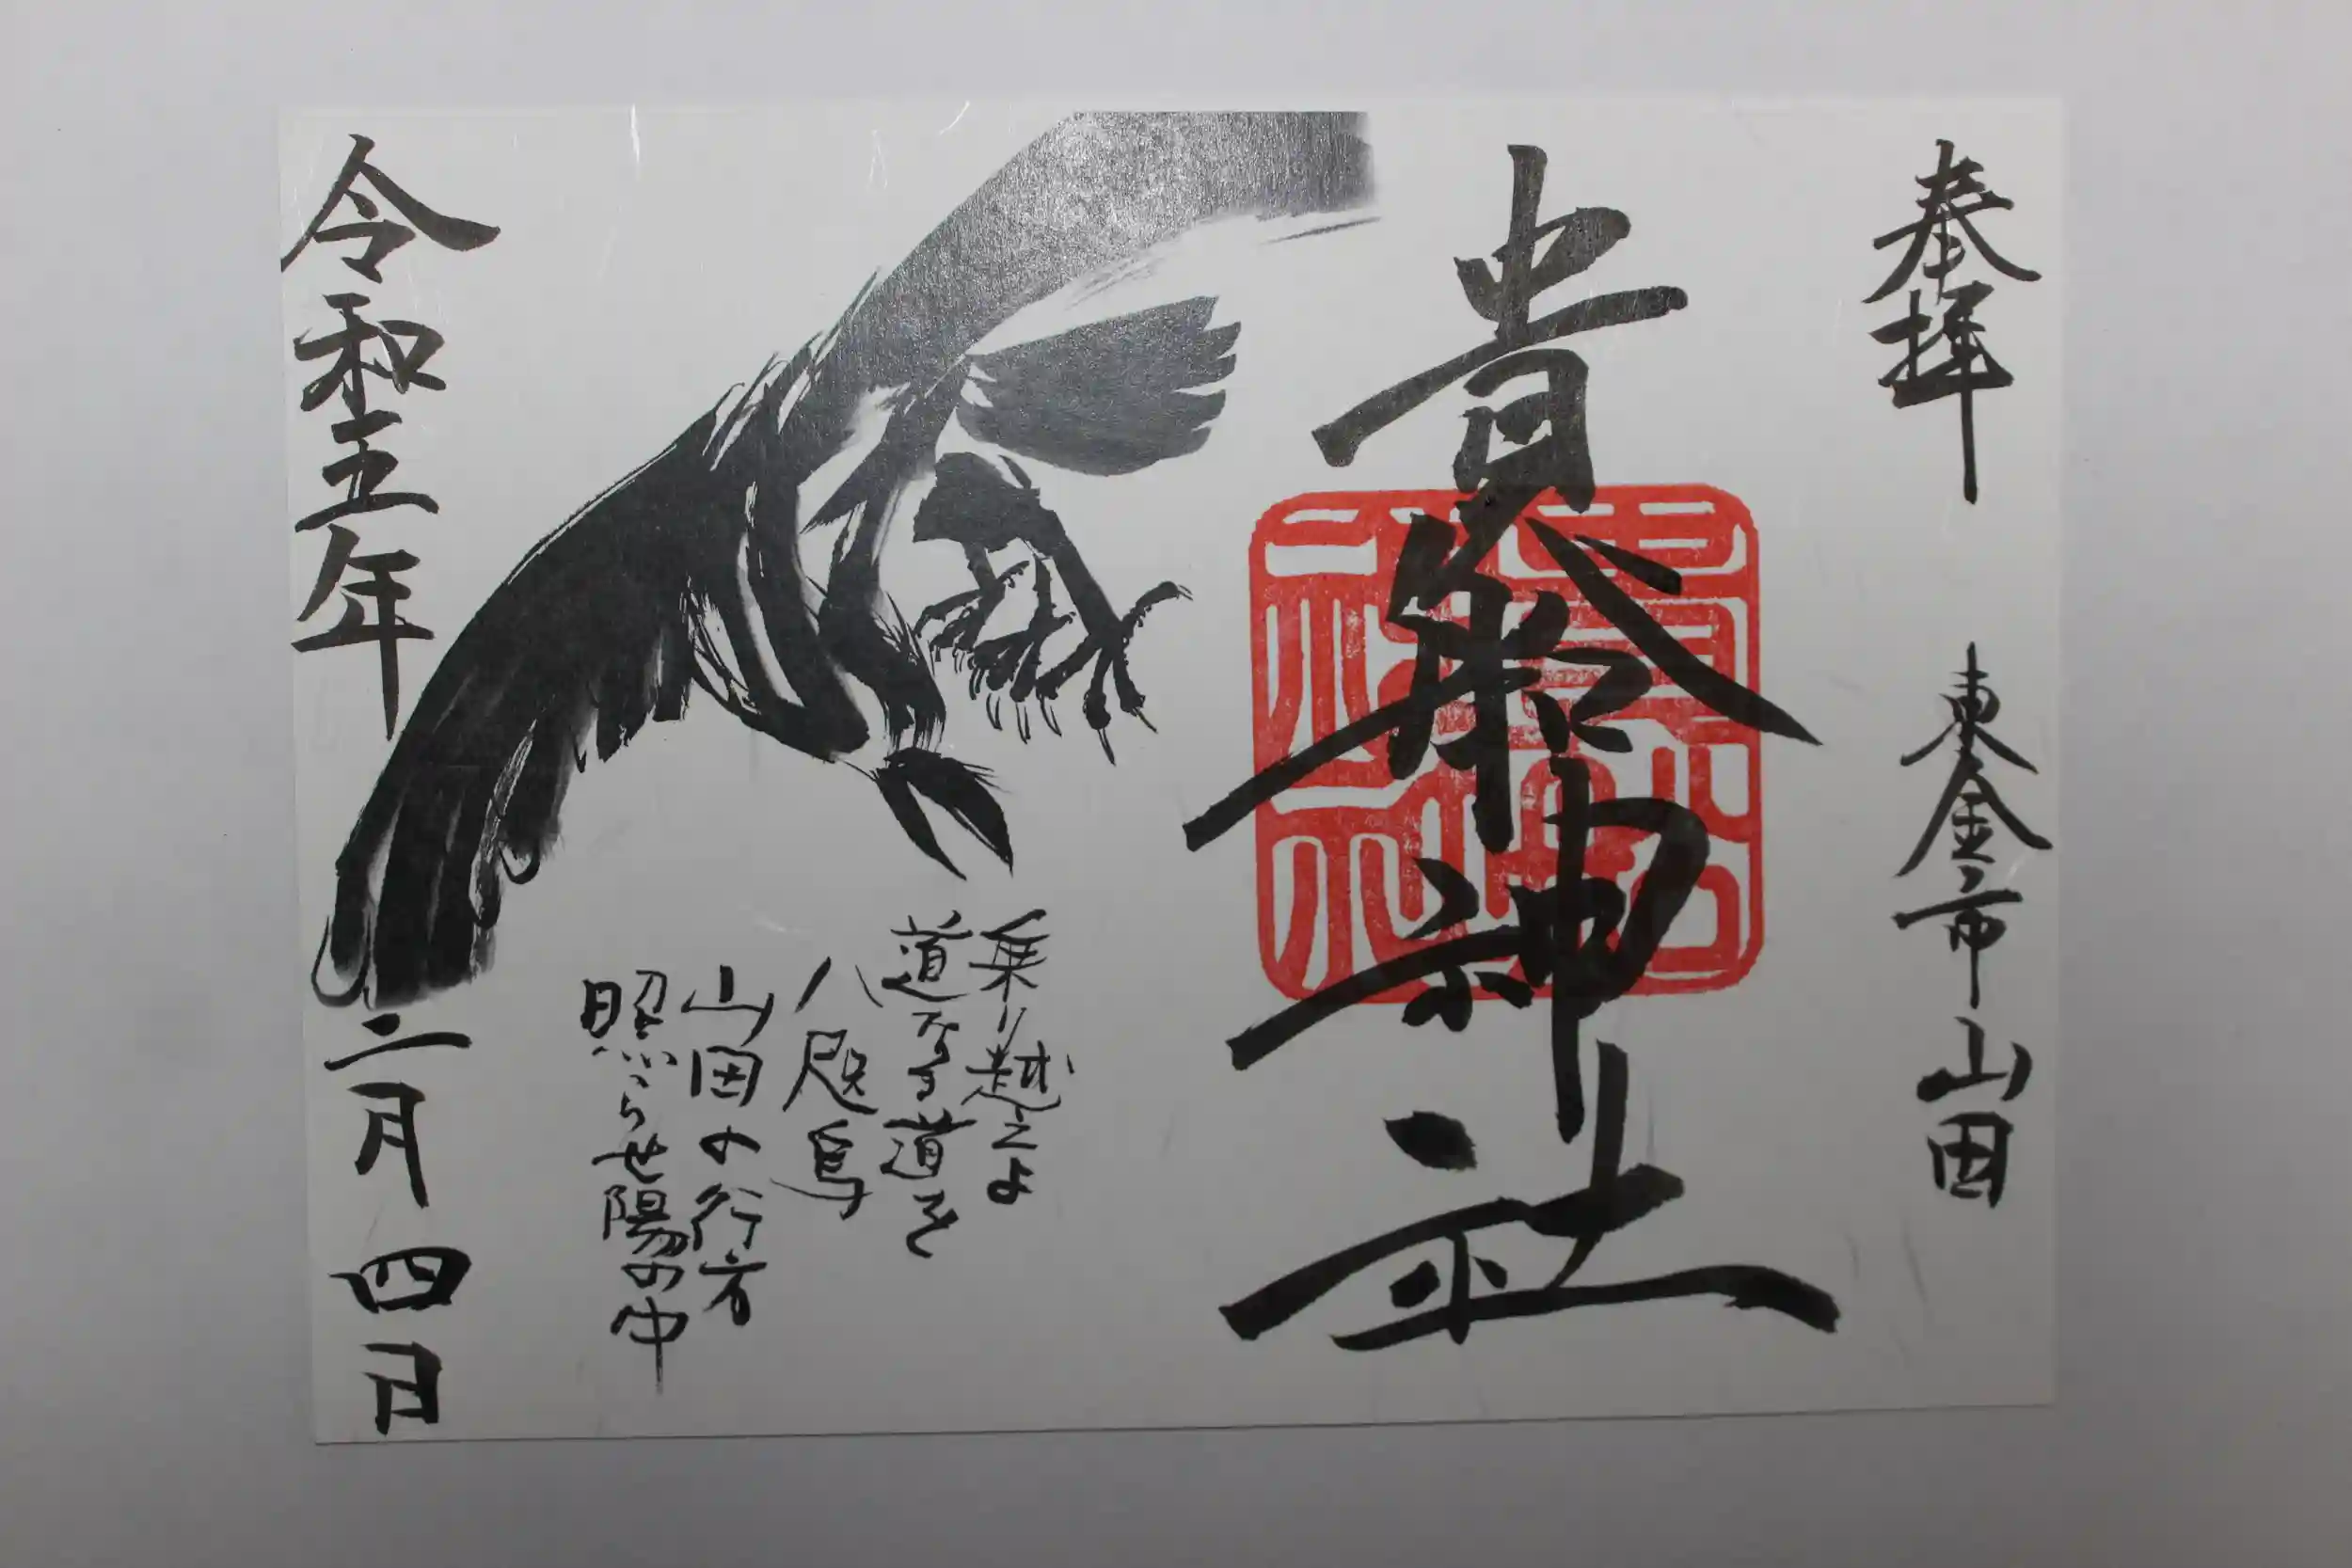 奉拝
東金市山田
貴船神社
乗り越えよ
道なき道を
八咫烏
山田の行方
照らせ陽の中
令和五年
二月四日